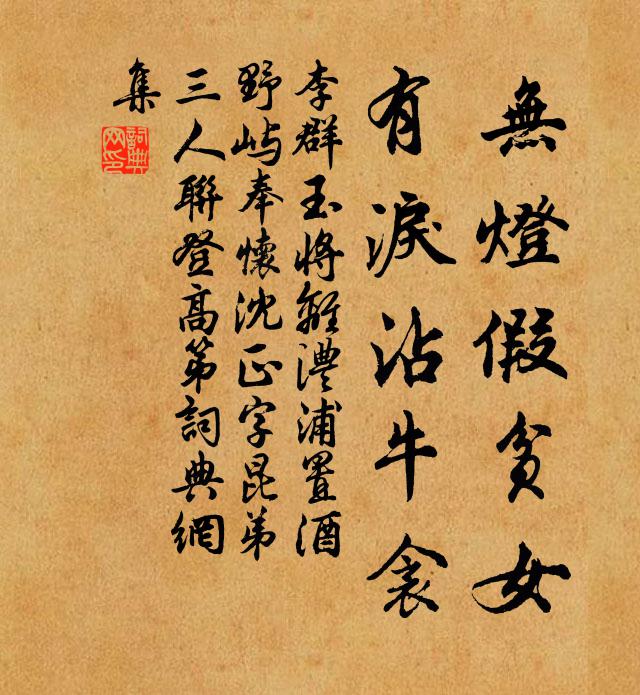 無燈假貧女
有淚沾牛衾
李群玉將離澧浦置酒
野嶼奉懷沈正字昆弟
三人聯登高第詞典網
集
詞典
网印